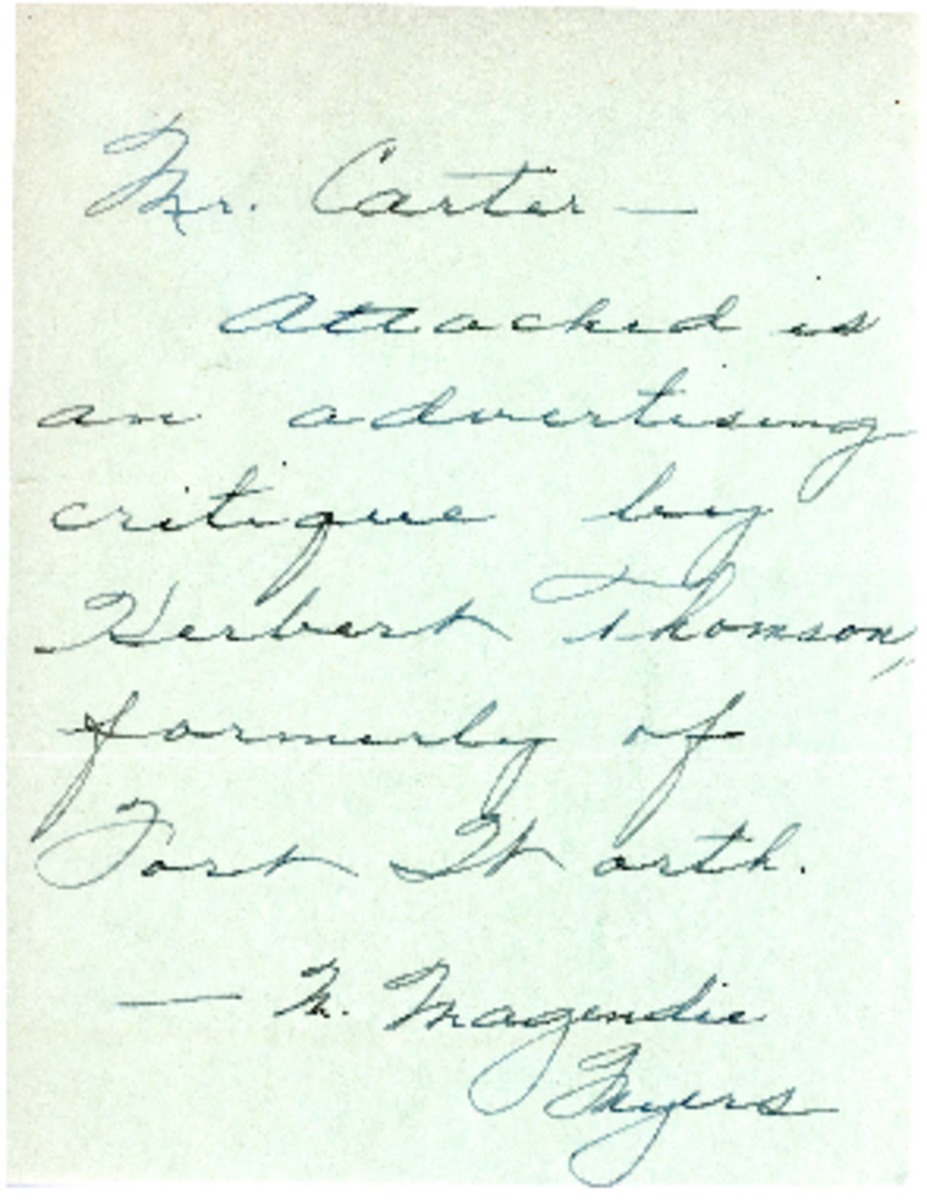 Mr. Carter —
Attached is
an advertising
critique by
Herbert Thomson,
formerly of
Fort Worth.
— M. Magendie
Myers